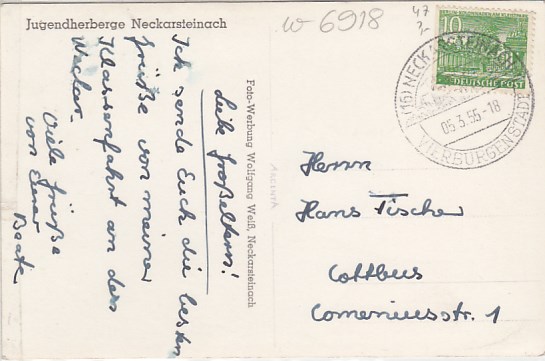 Jugendherberge Neckarsteinach
w 6918
47
10
DEUTSCHE POST
(16) NECKARSTEINACH
05.3.55-18
VIERBURGENSTADT
Liebe Großeltern!
Ich sende Euch die besten
Grüße von meiner
Klassenfahrt an den
Neckar.
Viele Grüße
von Eurer
Beate
Foto-Werbung Wolfgang Weiß, Neckarsteinach
Herrn
Hans Tischer
Cottbus
Comeniusstr. 1